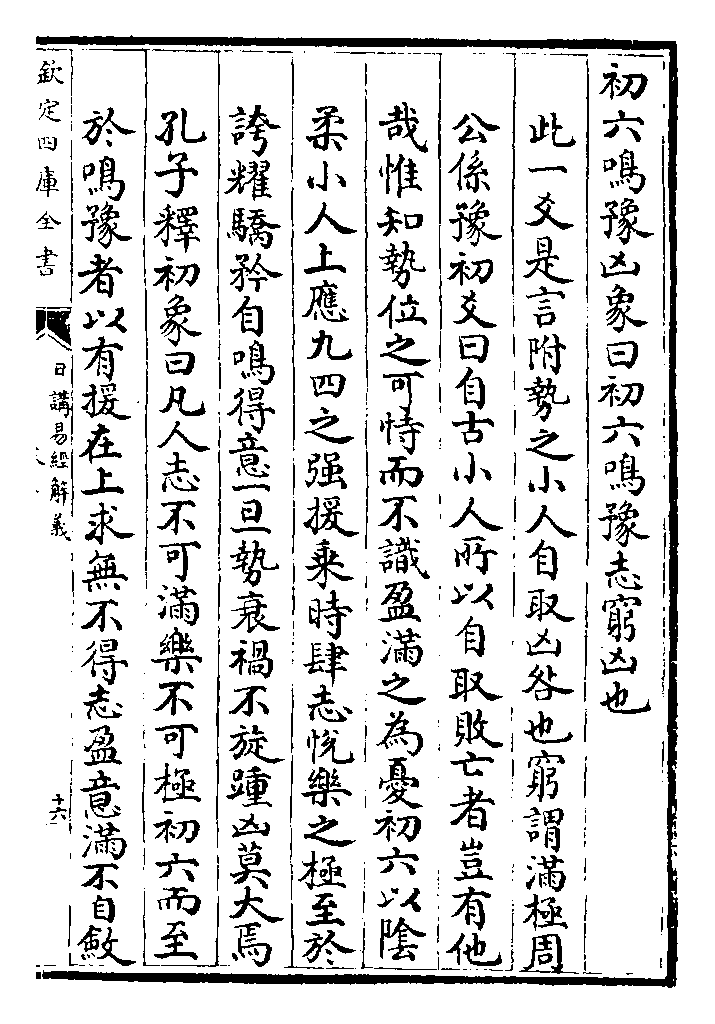 初六鳴豫凶象曰初六鳴豫志窮凶也
此一爻是言附勢之小人自取凶咎也窮謂滿極周
公係豫初爻曰自古小人所以自取敗亡者豈有他
哉惟知勢位之可恃而不識盈滿之為憂初六以陰
柔小人上應九四之强援乗時肆志悅樂之極至於
誇耀驕矜自鳴得意一旦勢衰禍不旋踵凶莫大焉
孔子釋初象曰凡人志不可滿樂不可極初六而至
於鳴豫者以有援在上求無不得志盈意滿不自斂
欽定四庫全書
日講易經解義
十六